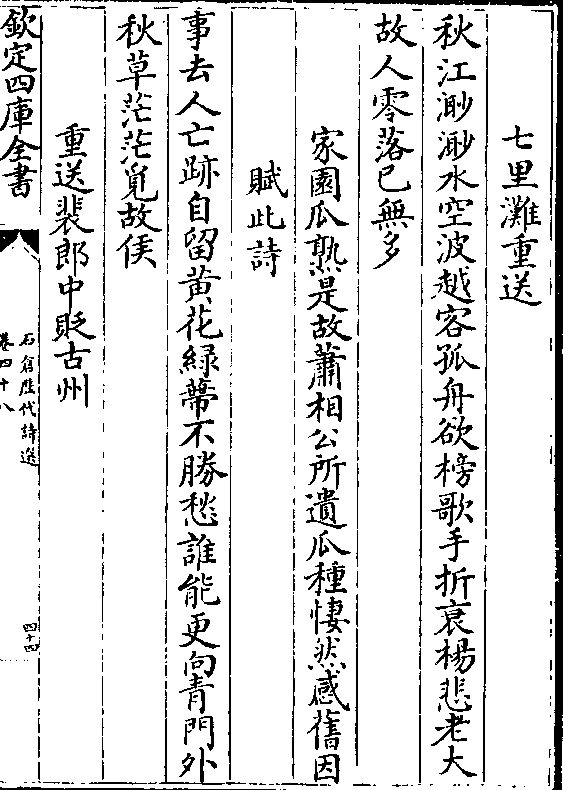 七里灘重送
秋江渺渺水空波越客孤舟欲榜歌手折衰楊悲老大
故人零落已無多
家園瓜熟是故蕭相公所遺瓜種悽然感舊因
賦此詩
事去人亡跡自留黃花綠蔕不勝愁誰能更向青門外
秋草茫茫覓故侯
重送裴郎中貶吉州
欽定四庫全書
石倉歷代詩選
卷四十八
四十四